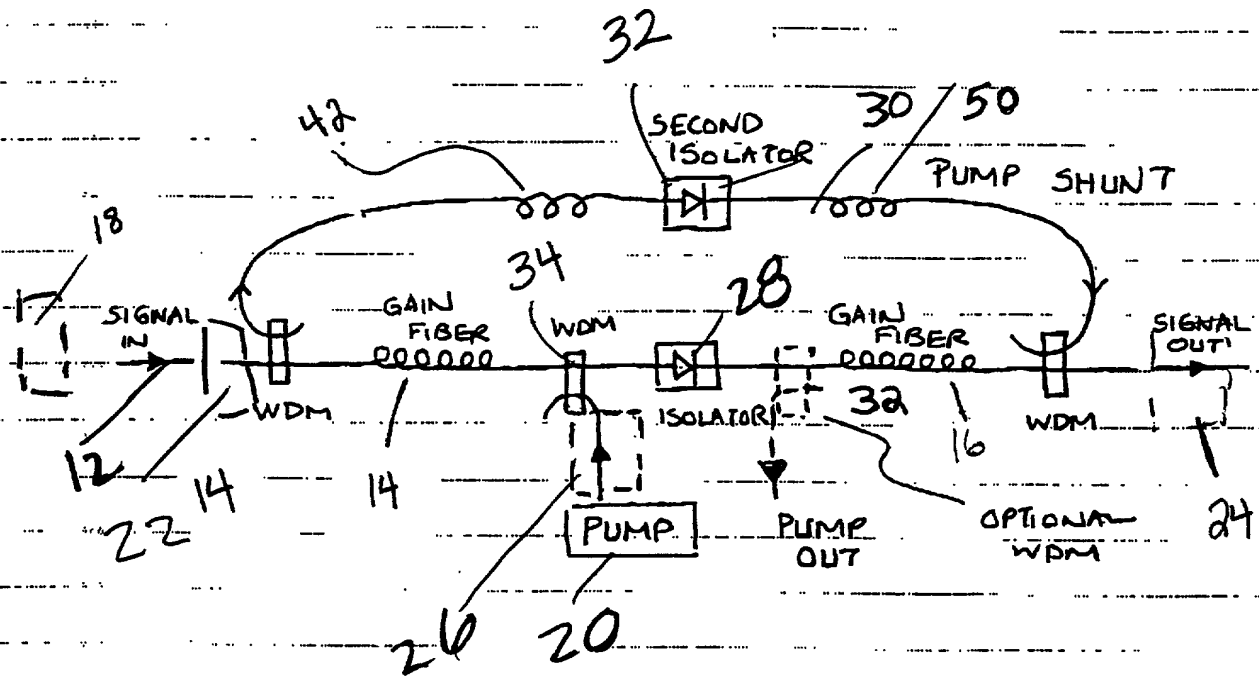 32
42
30 50
SECOND
ISOLATOR
PUMP SHUNT
18
34
28
SIGNAL
IN
GAIN
FIBER
WDM
GAIN
FIBER
SIGNAL
OUT
WDM
ISOLATOR
32
WDM
12
14
14
16
22
24
PUMP
PUMP
OUT
OPTIONAL
WDM
26
20